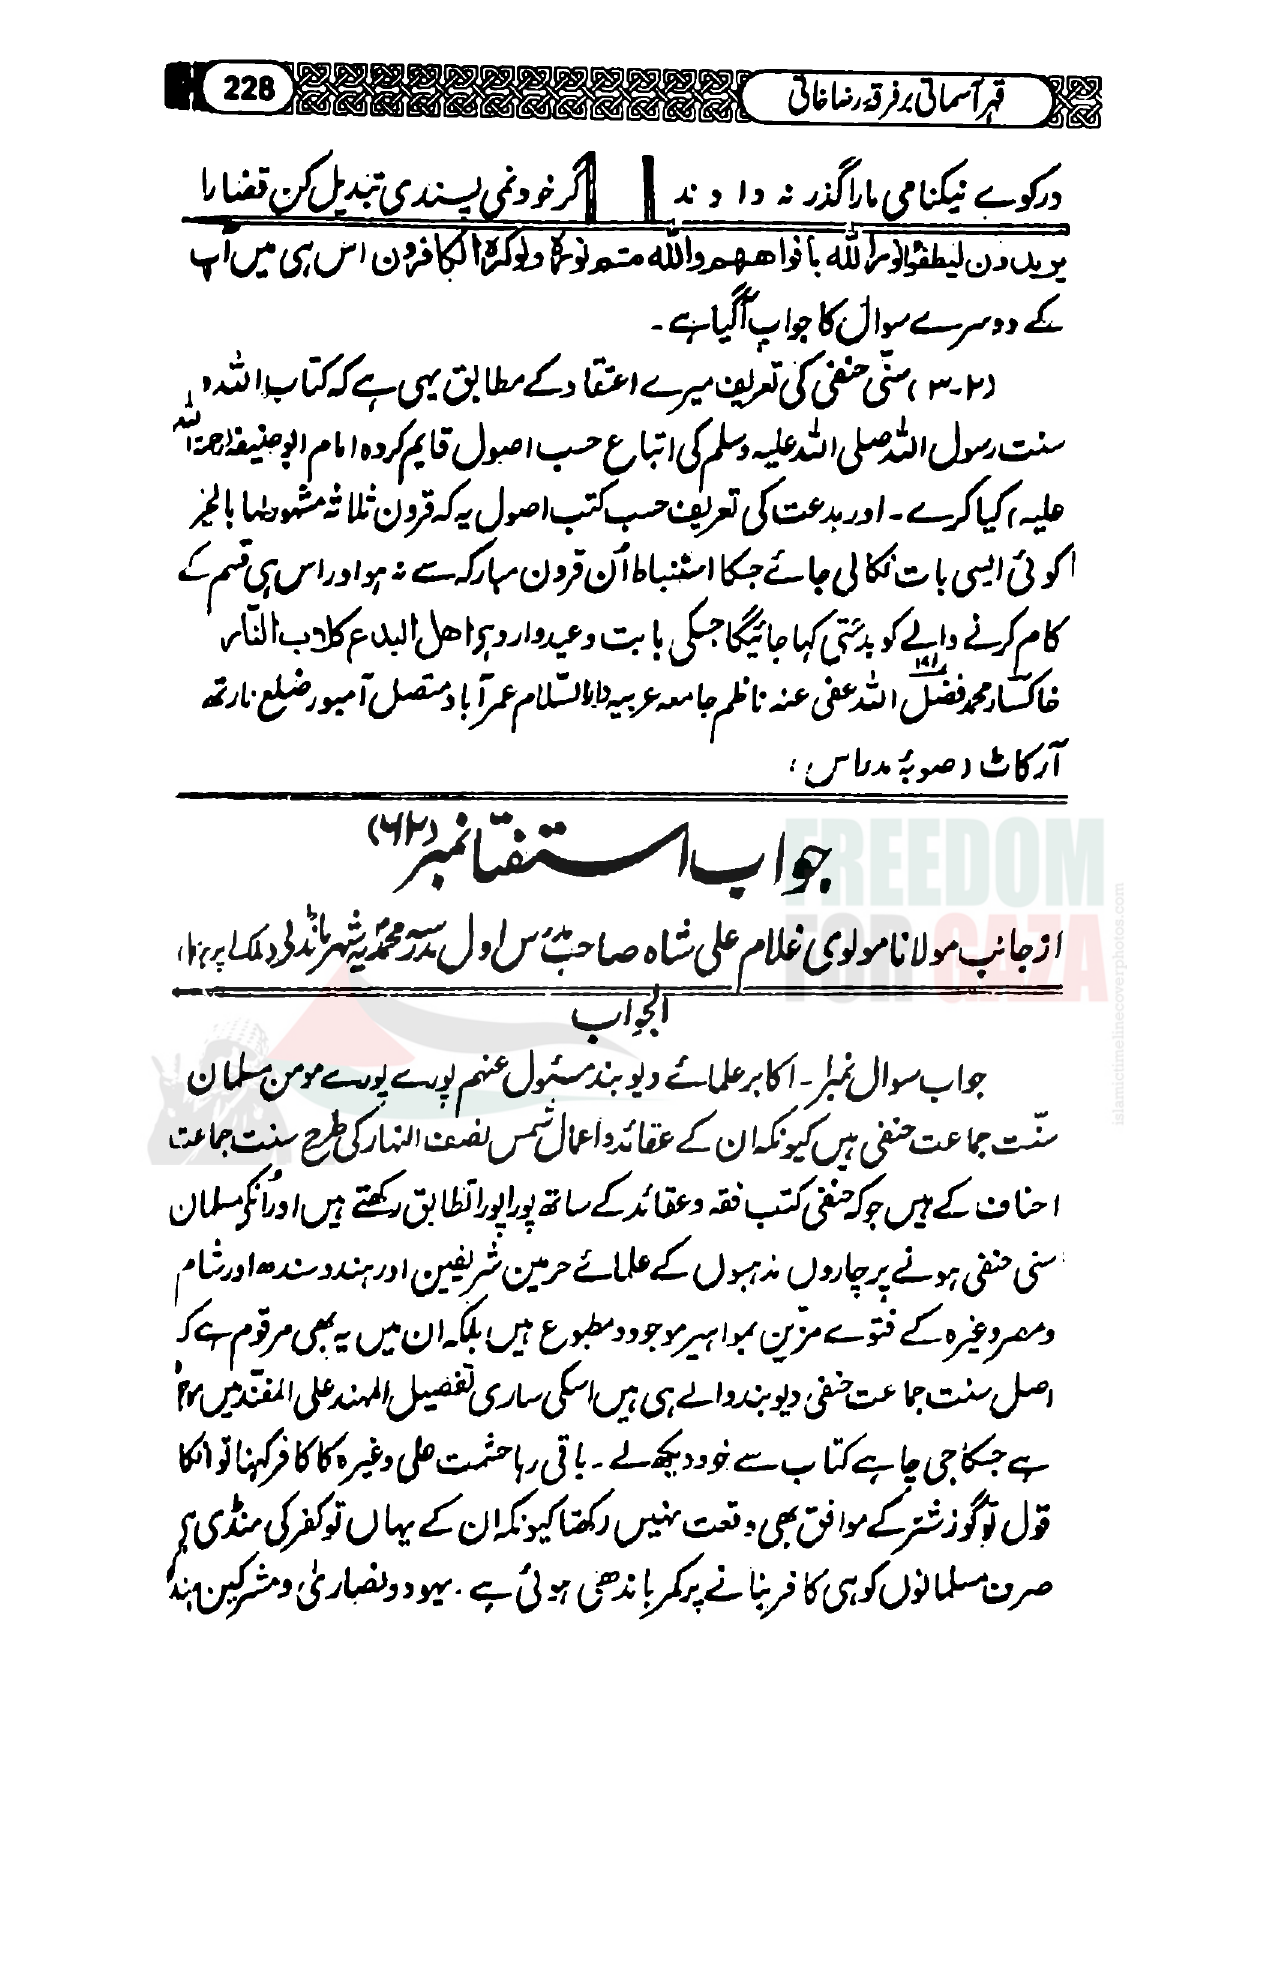 228
قہر آسمانی بر فرقہ رضاخانی
در کوے نیکنامی مارا گذر نہ دادند گر خود نمی پسندی تبدیل کن قضا را
یریدون لیطفؤا نور اللہ بافواھھم واللہ متم نورہ ولوکرہ الکافرون اس ہی میں آپ
کے دوسرے سوال کا جواب آگیا ہے۔
(۲-۳) سنّی حنفی کی تعریف میرے اعتقاد کے مطابق یہی ہے کہ کتاب اللہ و
سنت رسول اللہ صلی اللہ علیہ وسلم کی اتباع حسب اصول قایم کردہ امام ابوحنیفہ (رحمۃ اللہ
علیہ) کیا کرے۔ اور بدعت کی تعریف حسب کتب اصول یہ کہ قرون ثلاثہ مشہود لہا بالخیر
کوئی ایسی بات نکالی جائے جسکا استنباط اُن قرون مبارکہ سے نہ ہو اور اس ہی قسم کے
کام کرنے والے کو بدعتی کہا جائیگا جسکی بابت وعید وارد ہے اھل البدع کلاب النار
خاکسار محمد فضل اللہ عفی عنہ ناظم جامعہ عربیہ دارالسلام عمر آباد متصل آمبور ضلع نارتھ
آرکاٹ (صوبۂ مدراس)
جواب استفتا نمبر (۶۲)
از جانب مولانا مولوی غلام علی شاہ صاحب مدرس اول مدرسہ محمدیہ شہر مانڈلی
الجواب
جواب سوال نمبر۱۔ اکابر علمائے دیوبند مسئول عنہم پورے پورے مومن مسلمان
سنّت جماعت حنفی ہیں کیونکہ ان کے عقائد و اعمال شمس نصف النہار کی طرح سنت جماعت
احناف کے ہیں جو کہ حنفی کتب فقہ و عقائد کے ساتھ پورا پورا تطابق رکھتے ہیں اور اُنکے مسلمان
سنی حنفی ہونے پر چاروں مذہبوں کے علمائے حرمین شریفین اور ہند و سندھ اور شام
و مصر وغیرہ کے فتوے مزّین بمواہیر موجود و مطبوع ہیں بلکہ ان میں یہ بھی مرقوم ہے کہ
اصل سنت جماعت حنفی دیوبند والے ہی ہیں اسکی ساری تفصیل المہند علی المفنّد میں
ہے جسکا جی چاہے کتاب سے خود دیکھ لے۔ باقی رہا حشمت علی وغیرہ کا کافر کہنا تو انکا
قول تو گوز شتر کے موافق بھی وقعت نہیں رکھتا کیونکہ ان کے یہاں تو کفر کی منڈی ہے
صرف مسلمانوں کو ہی کافر بنانے پر کمر باندھی ہوئی ہے۔ یہود و نصاریٰ و مشرکین ہند
FREEDOM
FOR GAZA
islamictimelinecoverphotos.com